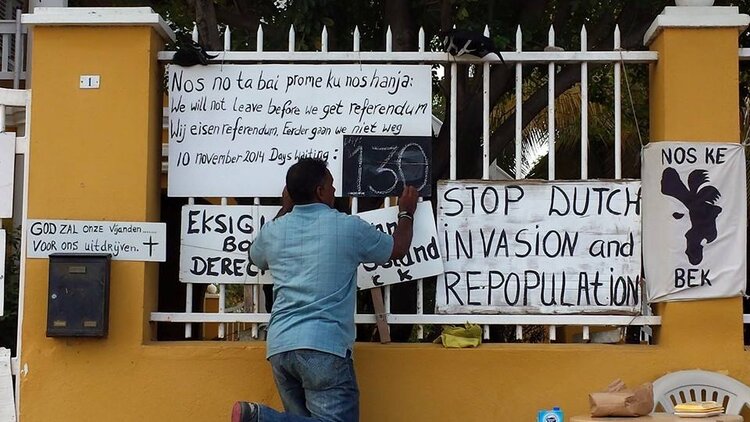 1
Nos no ta bai prome ku nos hanja:
We will not leave before we get referendum
Wij eisen referendum. Eerder gaan we niet weg
10 november 2014 Days waiting:
130
GOD ZAL onze Vijanden.....
VOOR ons uitdrijven. †
DERECH
STOP DUTCH
INVASION and
REPOPULATION
NOS KE
BEK